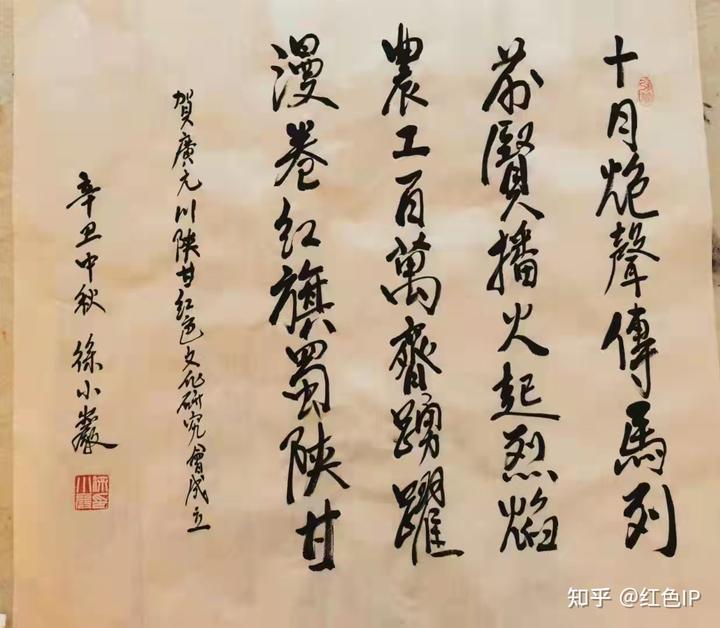 十月炮聲傳馬列
前賢播火起烈焰
農工百萬齊踴躍
漫卷红旗蜀陝甘
賀廣元川陝甘红色文化研究會成立
辛丑中秋 徐小巖
知乎 @红色IP